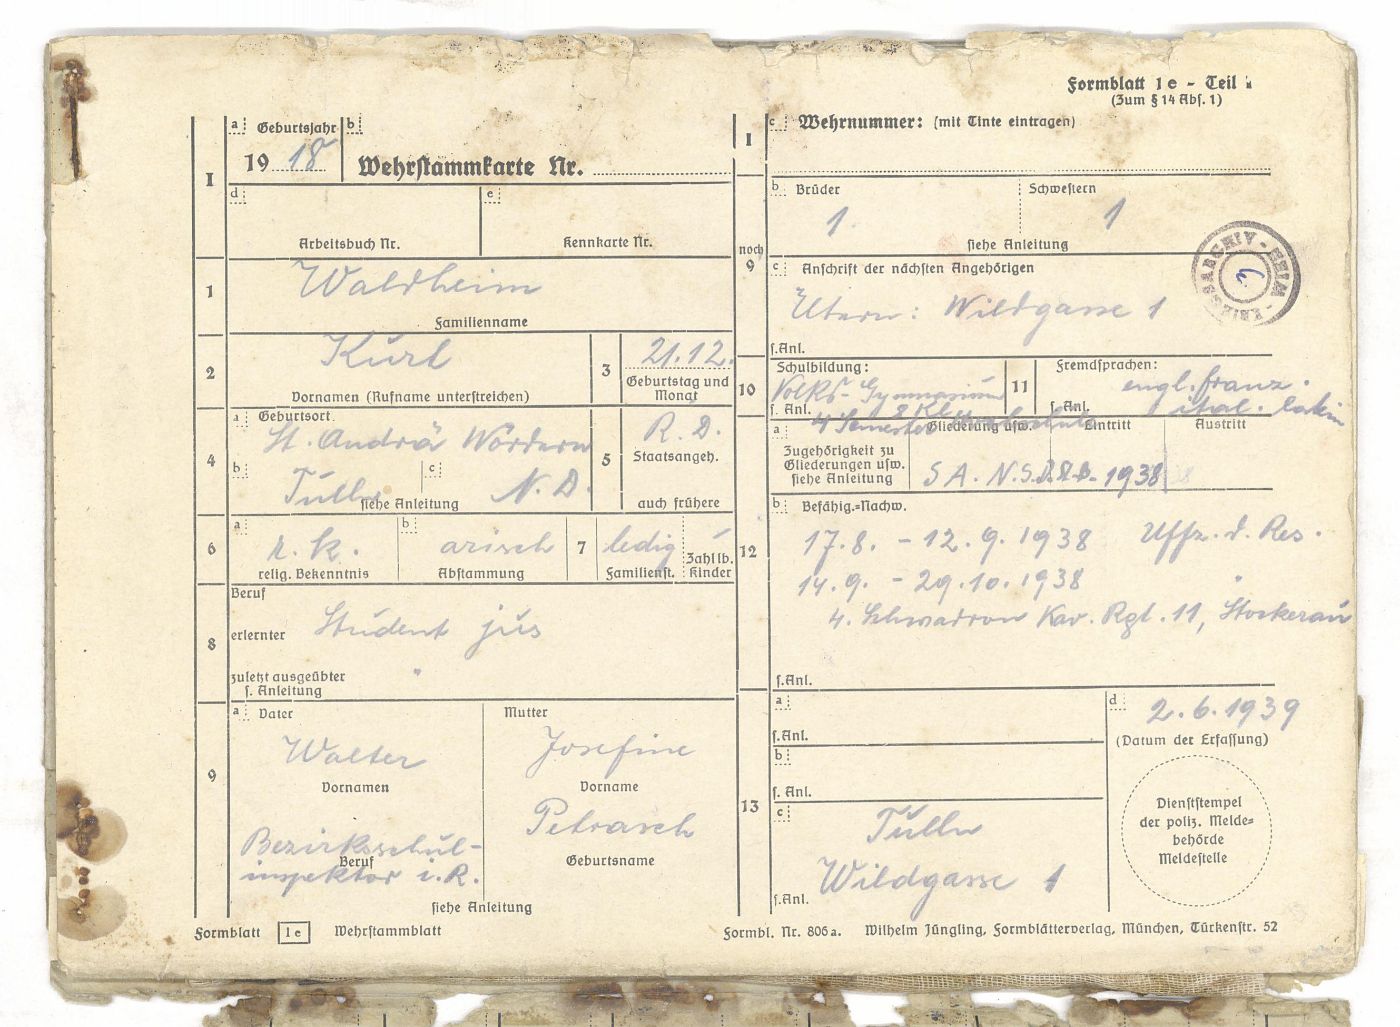 Formblatt 1e - Teil
(Zum § 14 Abs. 1)
a Geburtsjahr b
I 19 18 Wehrstammkarte Nr.
d e
Arbeitsbuch Nr. Kennkarte Nr.
1 Waldheim
Familienname
2 Kurt 3 21.12.
Vornamen (Rufname unterstreichen) Geburtstag und Monat
a Geburtsort
4 St. Andrä Wördern 5 R. D.
Staatsangeh.
b c
Tulln N. D.
siehe Anleitung auch frühere
a b
6 r. k. arisch 7 ledig
relig. Bekenntnis Abstammung Familienst. Zahl lb. Kinder
Beruf
8 erlernter Student jus
zuletzt ausgeübter "
s. Anleitung
a Vater Mutter
9 Walter Josefine
Vornamen Vorname
Bezirksschul- Petrasch
Beruf Geburtsname
inspektor i. R.
siehe Anleitung
Formblatt 1e Wehrstammblatt
I c Wehrnummer: (mit Tinte eintragen)
b Brüder Schwestern
1. 1
siehe Anleitung
noch 9
c Anschrift der nächsten Angehörigen
Eltern: Wildgasse 1
s. Anl.
KRIEGSARCHIV - HEIM -
10 Schulbildung: 11 Fremdsprachen:
Volks- Gymnasium engl. franz.
s. Anl. 8 Kl. s. Anl. ital. latein
4 Semester Hochschule
a Gliederung usw. Eintritt Austritt
Zugehörigkeit zu
Gliederungen usw.
siehe Anleitung
S A. N.S. 1938
b Befähig.=Nachw.
12 17.8. - 12.9.1938 Uffz. d. Res.
14.9. - 29.10.1938 "
4. Schwadron Kav. Rgt. 11, Stockerau
s. Anl.
a d 2.6.1939
s. Anl. (Datum der Erfassung)
b
s. Anl.
13 c Tulln
Wildgasse 1
s. Anl.
Dienststempel
der poliz. Melde=
behörde
Meldestelle
Formbl. Nr. 806a. Wilhelm Jüngling, Formblätterverlag, München, Türkenstr. 52